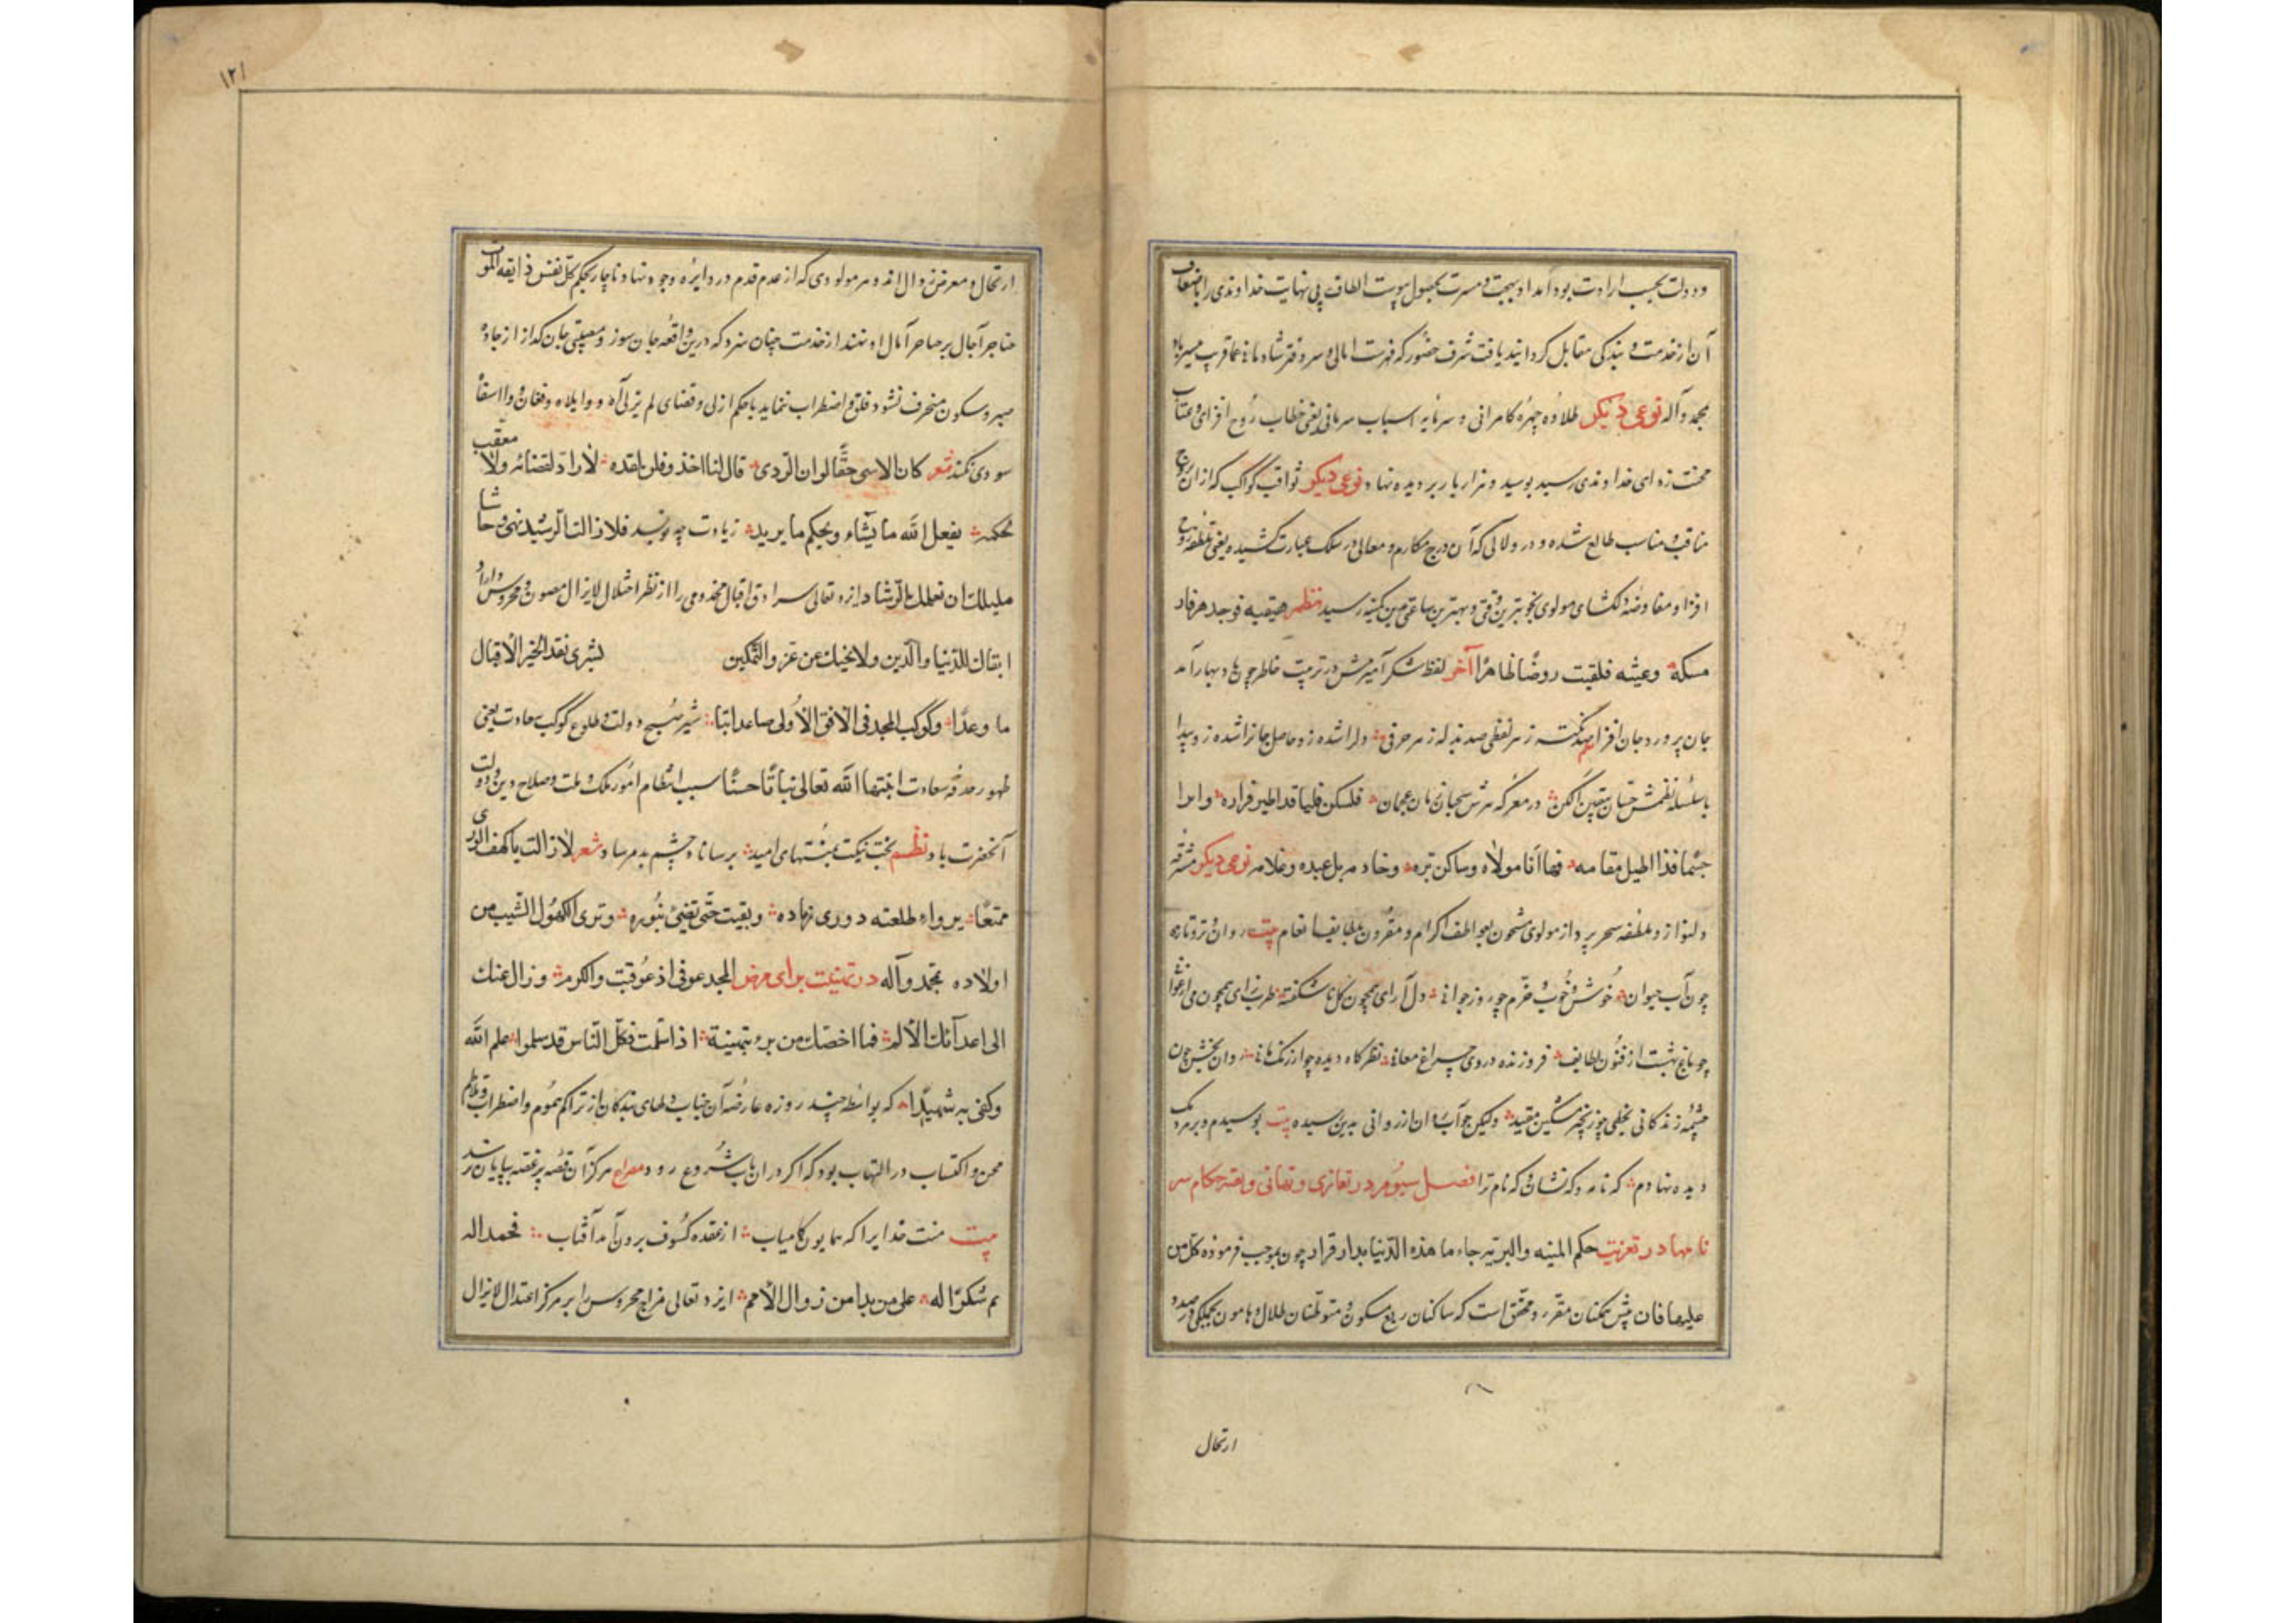 ودولت بحسب ارادت بود آمد او بهجت و مسرت بحصول پیوست الطاف بی نهایت خداوندی را باضعاف
آن از خدمت و بندکی مقابل کردانید یافت شرف حضور که فهرست امالی و سر دفتر شادمانی عماقریب میسر باد
بمحمد وآله نوعی دیکر طلاوه چهره کامرانی و سرمایه اسباب یعنی خطاب روح افزای وعتاب
محنت زدای خداوندی رسید بوسید و هزار بار بر دیده نهاد نوعی دیکر ثواقب کواکب که از ان برج
مناقب و مناسب طالع شده و درر ولالی که آن درج مکارم و معالی در سلک عبارت کشیده یعنی ملطفه روح
افزا و مفاوضه دلکشای مولوی بخوبترین وقتی و بهترین ساعتی بدین کمینه رسید نظم
مسکه وعیشه فلقیت روضا ظاهرا آخر لفظ شکر آمیزش در تربیت خاطر چون باد بهار آمد
جان پرور و جان افزا صد نکته زهر لفظی صد بذله زهر حرفی دلرا شده زو حاصل جانرا شده زو پیدا
با سلسله نظمش حسان در معرکه نثرش سحبان زمان فلسکن قلبها قد اطیر فراده وابرا
جثما فذا الطیل مقامه فها انا مولاه وساکن بره وخادمه بل عبده وغلامه نوعی دیکر مشرفه
دلنواز و ملطفه سحر پرداز مولوی مشحون بعواطف اکرام و مقرون بلطایف انعام بیت روان تر و تازه
چون آب حیوان خوش و خوب و خرم چو روز جوانی دل آرای همچون کل ناشکفته طرب زای همچون می ارغوانی
چو باغ بهشت از فنون لطایف فروزنده در وی چراغ معانی نظرکاه دیده چو ارژنک مانی روان بخش چون
چشمه زندکانی بخطی چو زنجیر مشکین مقید ولیکن چو آب روان از روانی بدین سیده بیت بوسیدم و بر مردمک
دیده نهادم که نامه و که نشان و که نام ترا فصل سیوم در تعازی و تهانی و بقیه حکام سر
نامها در تعزیت حکم المنیه والبریه جاء ما هذه الدنیا بدار قرار چون بموجب فرموده کل من
علیها فان پیش همکنان مقرر و محقق است که ساکنان ربع مسکون و متوطنان طلال و هامون بجملکی در صدد
ارتحال
۱۲۱
ارتحال و معرض زوال اند و هر مولودی که از عدم قدم در دایره وجود نهاد ناچار بحکم کل نفس ذایقه الموت
خناجر آجال بر حناجر آمال او نهند از خدمت چنان سزد که درین واقعه جان سوز و مصیبتی جان کداز از جاده
صبر و سکون منحرف نشود و قلق و اضطراب ننماید با حکم ازلی و قضای لم یزلی آه و واویلاه و فغان و وااسفا
سودی نکند شعر کان الاسی حقا لو ان الردی قال لنا اخذ وفلن نفقده لا راد لقضائه ولا معقب
لحکمه یفعل الله ما یشاء ویحکم ما یرید زیادت چه نویسد فلازالت الرشید نهی وحاشا
ان نعلمک الرشاد ایزد تعالی سرادق اقبال مخدومی را از نظر اختلال لایزال مصون و محروس دارد
ابقاک للدنیا والدین ولا نحیک عن عز والتمکین بشری نقد انجز الاقبال
ما وعدا وکوکب المجد فی الافق الاولی صاعد ابنا بشیر صبح دولت و طلوع کوکب سعادت یعنی
ظهور حدقه سعادت انبتها الله تعالی نباتا حسنا سبب انتظام امور ملک و ملت و صلاح دین و دولت
آنحضرت باد نظم بخت نیکت بمنتهای امید برساناد چشم بد مرساد شعر لازالت یا کهف الوری
ممتعا یرواء طلعته دوری زناده وبقیت حتی تضیئ بنوره وتری الکهول الشیب من
اولاده بمحمد وآله در تهنیت برای مرض المجد عوفی اذ عوفیت والکرم وزال عنک
الی اعدائک الالم فما اخصک من برء بتهنیة اذا سلمت فکل الناس قد سلموا علم الله
وکفی به شهیدا که بواسطه چند روزه عارضه آن جناب دلهای بندکان از تراکم هموم و اضطراب و تلاطم
محن و اکتساب در التهاب بود که اکر در ان باب شروع رود مصراع هرکز آن قصه پر غصه بپایان نرسد
بیت منت خدایرا که همایون کامیاب از عقده کسوف برون آمد آفتاب فحمدا له
ثم شکرا له علی من بدا من زوال الامم ایزد تعالی مزاج محروس را بر مرکز اعتدال لایزال